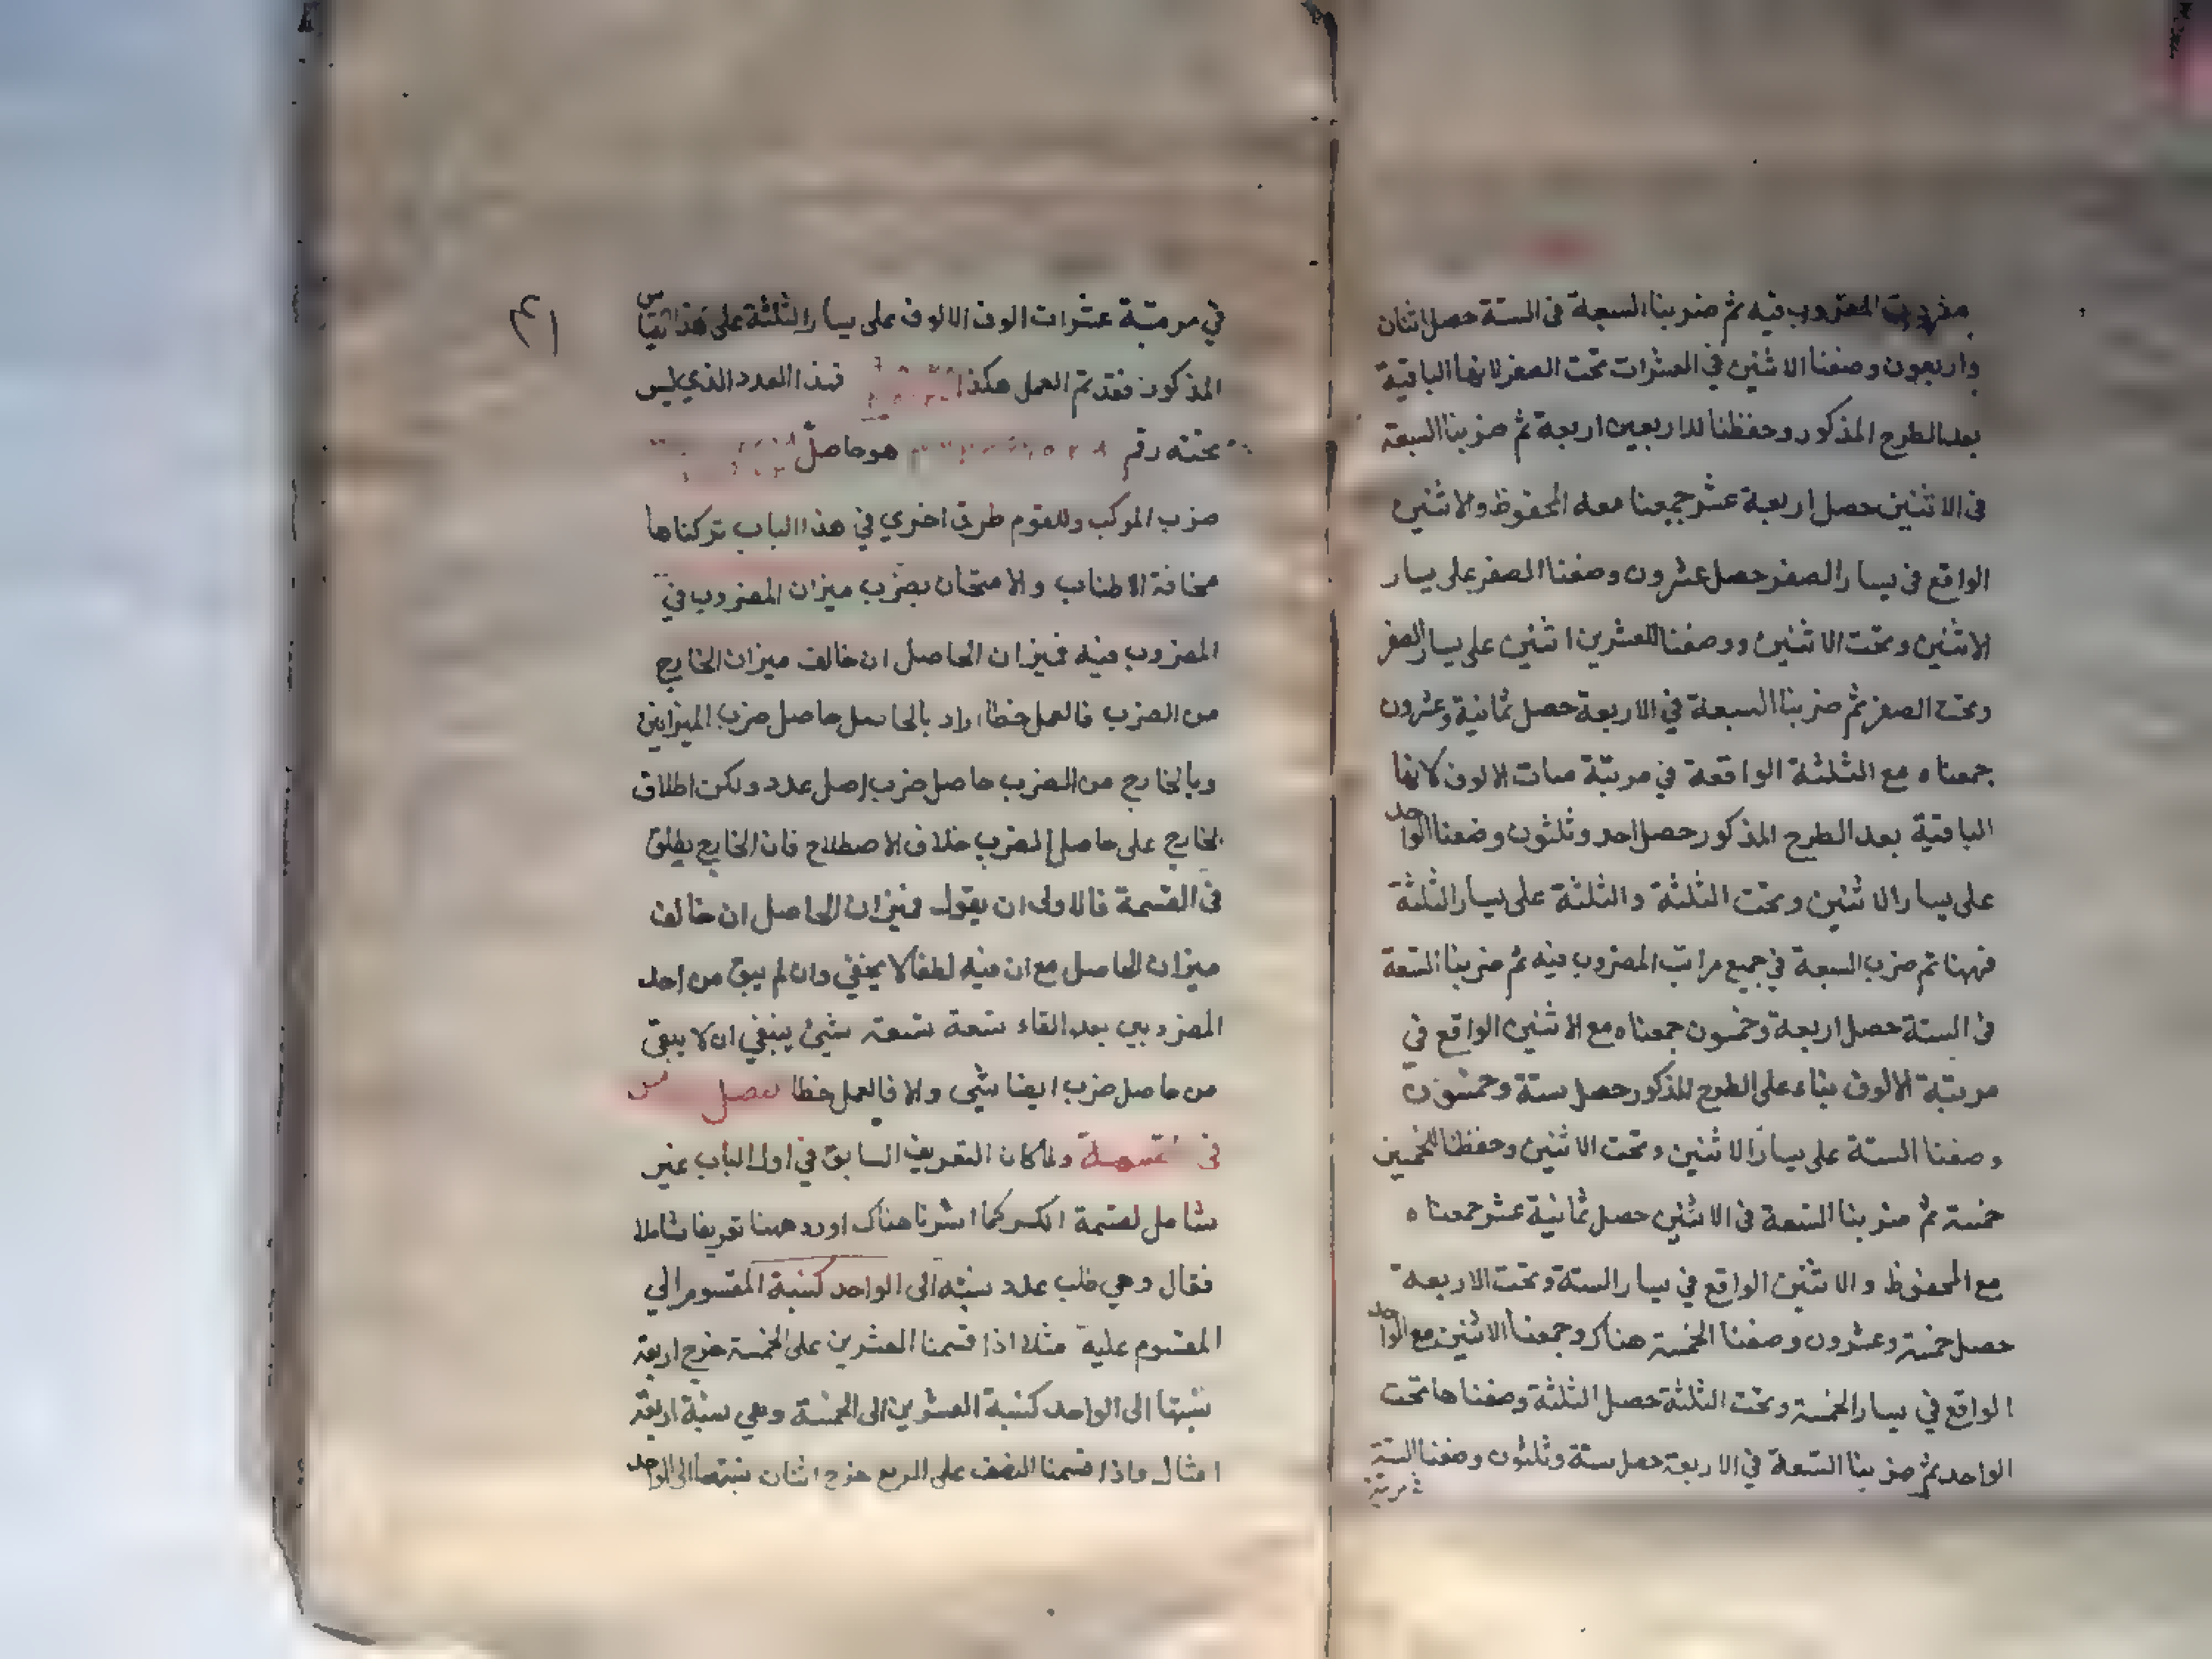 مفردات المضروب فيه ثم ضربنا السبعة فى الستة حصل اثنان
واربعون وضعنا الاثنين في العشرات تحت الصفر لانها الباقية
بعد الطرح المذكور وحفظنا للاربعين اربعة ثم ضربنا السبعة
فى الاثنين حصل اربعة عشر جمعنا معه المحفوظ والاثنين
الواقع فى يسار الصفر حصل عشرون وضعنا الصفر على يسار
الاثنين وتحت الاثنين ووضعنا للعشرين اثنين على يسار الصفر
وتحت الصفر ثم ضربنا السبعة في الاربعة حصل ثمانية وعشرون
جمعناه مع الثلثة الواقعة في مرتبة مئات الالوف لانها
الباقية بعد الطرح المذكور حصل احد وثلثون وضعنا الواحد
على يسار الاثنين وتحت الثلثة والثلثة على يسار الثلثة
فههنا تم ضرب السبعة في جميع مراتب المضروب فيه ثم ضربنا التسعة
فى الستة حصل اربعة وخمسون جمعناه مع الاثنين الواقع في
مرتبة الالوف بناء على الطرح المذكور حصل ستة وخمسون
وضعنا الستة على يسار الاثنين وتحت الاثنين وحفظنا للخمسين
خمسة ثم ضربنا التسعة فى الاثنين حصل ثمانية عشر جمعناه
مع المحفوظ والاثنين الواقع في يسار الستة وتحت الاربعة
حصل خمسة وعشرون وضعنا الخمسة هناك وجمعنا الاثنين مع الواحد
الواقع في يسار الخمسة وتحت الثلثة حصل الثلثة وضعناها تحت
الواحد ثم ضربنا التسعة في الاربعة حصل ستة وثلثون وضعنا الستة
في مرتبة
٣١
في مرتبة عشرات الوف الالوف على يسار الثلثة على هذا القياس
المذكور فقد تم العمل هكذا فهذا العدد الذي ليس
تحته رقم هو حاصل
ضرب المركب وللقوم طرق اخري في هذا الباب تركناها
مخافة الاطناب والامتحان بضرب ميزان المضروب في
المضروب فيه فميزان الحاصل ان خالف ميزان الخارج
من الضرب فالعمل خطأ اراد بالحاصل حاصل ضرب الميزانين
وبالخارج من الضرب حاصل ضرب اصل عدد ولكن اطلاق
الخارج على حاصل الضرب خلاف الاصطلاح فان الخارج يطلق
فى القسمة فالاولى ان يقول فميزان الحاصل ان خالف
ميزان الحاصل مع ان فيه لطفا لا يخفي وان لم يبق من احد
المضروبين بعد القاء تسعة تسعة شيئ ينبغي ان لا يبقى
من حاصل ضرب ايضا شيى والا فالعمل خطا فصل
فى القسمة ولما كان التعريف السابق في اول الباب غير
شامل لقسمة الكسر كما اشرنا هناك اورد ههنا تعريفا شاملا
فقال وهي طلب عدد نسبته الى الواحد كنسبة المقسوم الي
المقسوم عليه مثلا اذا قسمنا العشرين على الخمسة خرج اربعة
نسبتها الى الواحد كنسبة العشرين الى الخمسة وهي نسبة اربعة
امثال واذا قسمنا النصف على الربع خرج اثنان نسبتهما الى الواحد